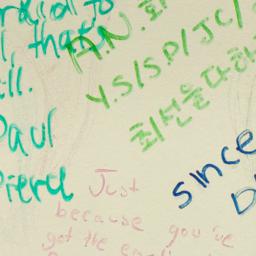 that
ll.
Paul
Pieru
H.N.
Y.S/S.P/J.C/
최선을다하
since
D
Just
because you've
got the